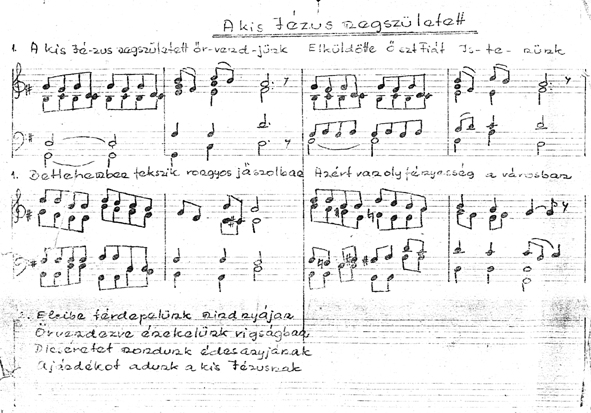 A kis Jézus megszületett
1. A kis Jé-zus megszületett ör-vend-jünk Elküldötte Ő szt Fiát Is-te-nünk
1. Betlehemben fekszik rongyos jászolban Azért van oly fényesség a városban
2. Elébe térdepelünk mindnyájan
Örvendezve énekelünk vígságban
Dicséretet mondunk édesanyjának
Ajándékot adunk a kis Jézusnak